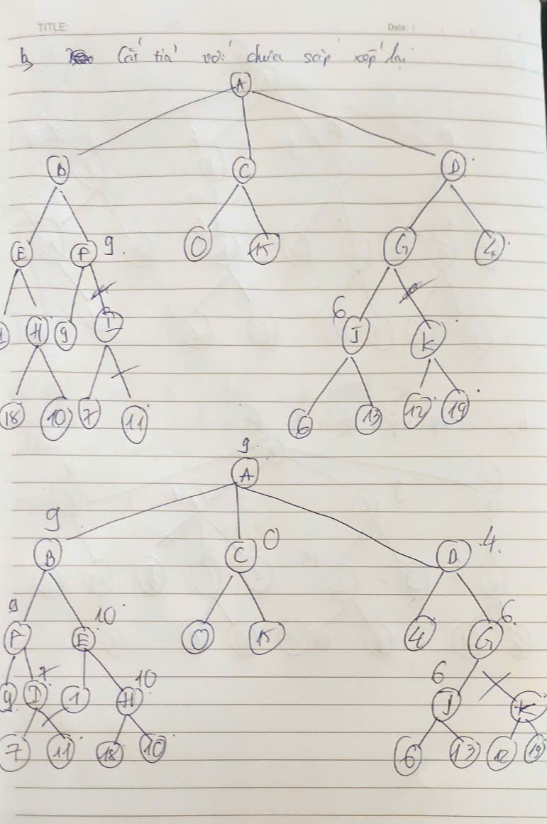 TITLE: Data :
b, Cắt tỉa với chưa sắp xếp lại
A
B C D
E F 9. O 15 G 4
H 9 I 6 J K
18 10 7 11 6 13 12 19
9
A
9 B C 0 D 4.
9 F E 10 O K 4 G 6.
9 I 7 1 H 10 6 J K
7 11 18 10 6 13 12 19